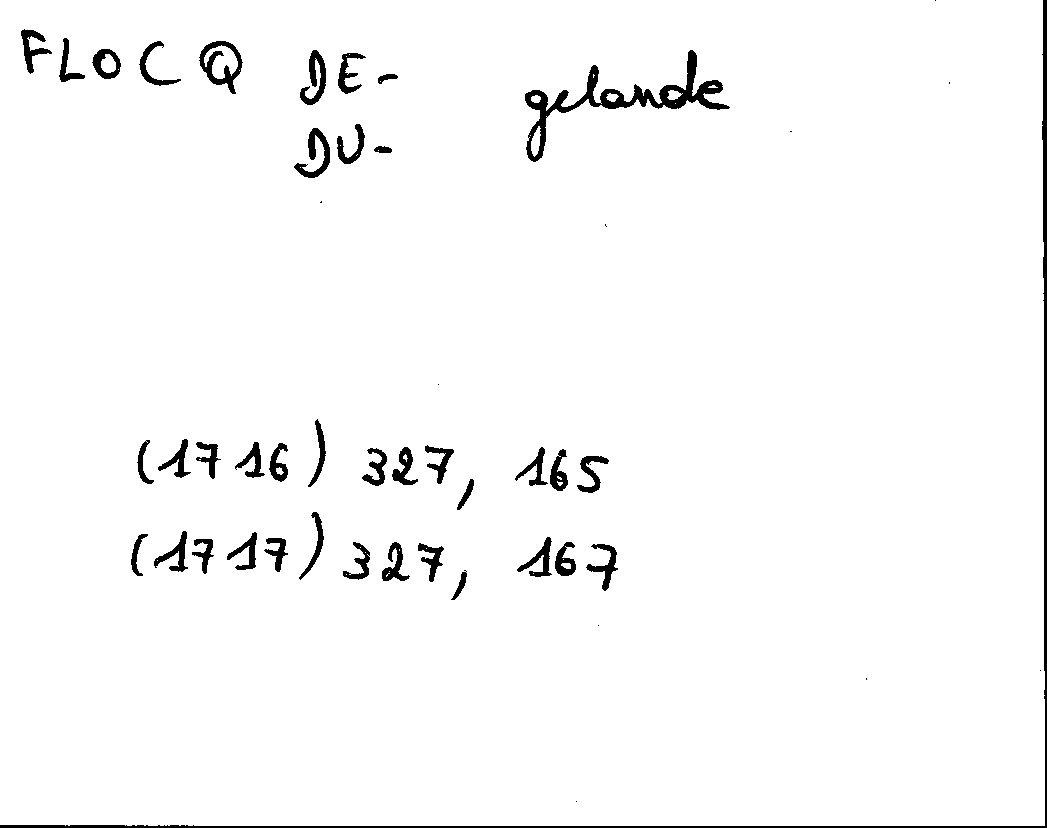 FLOCQ DE- gelande
DU-
(1716) 327, 165
(1717) 327, 167